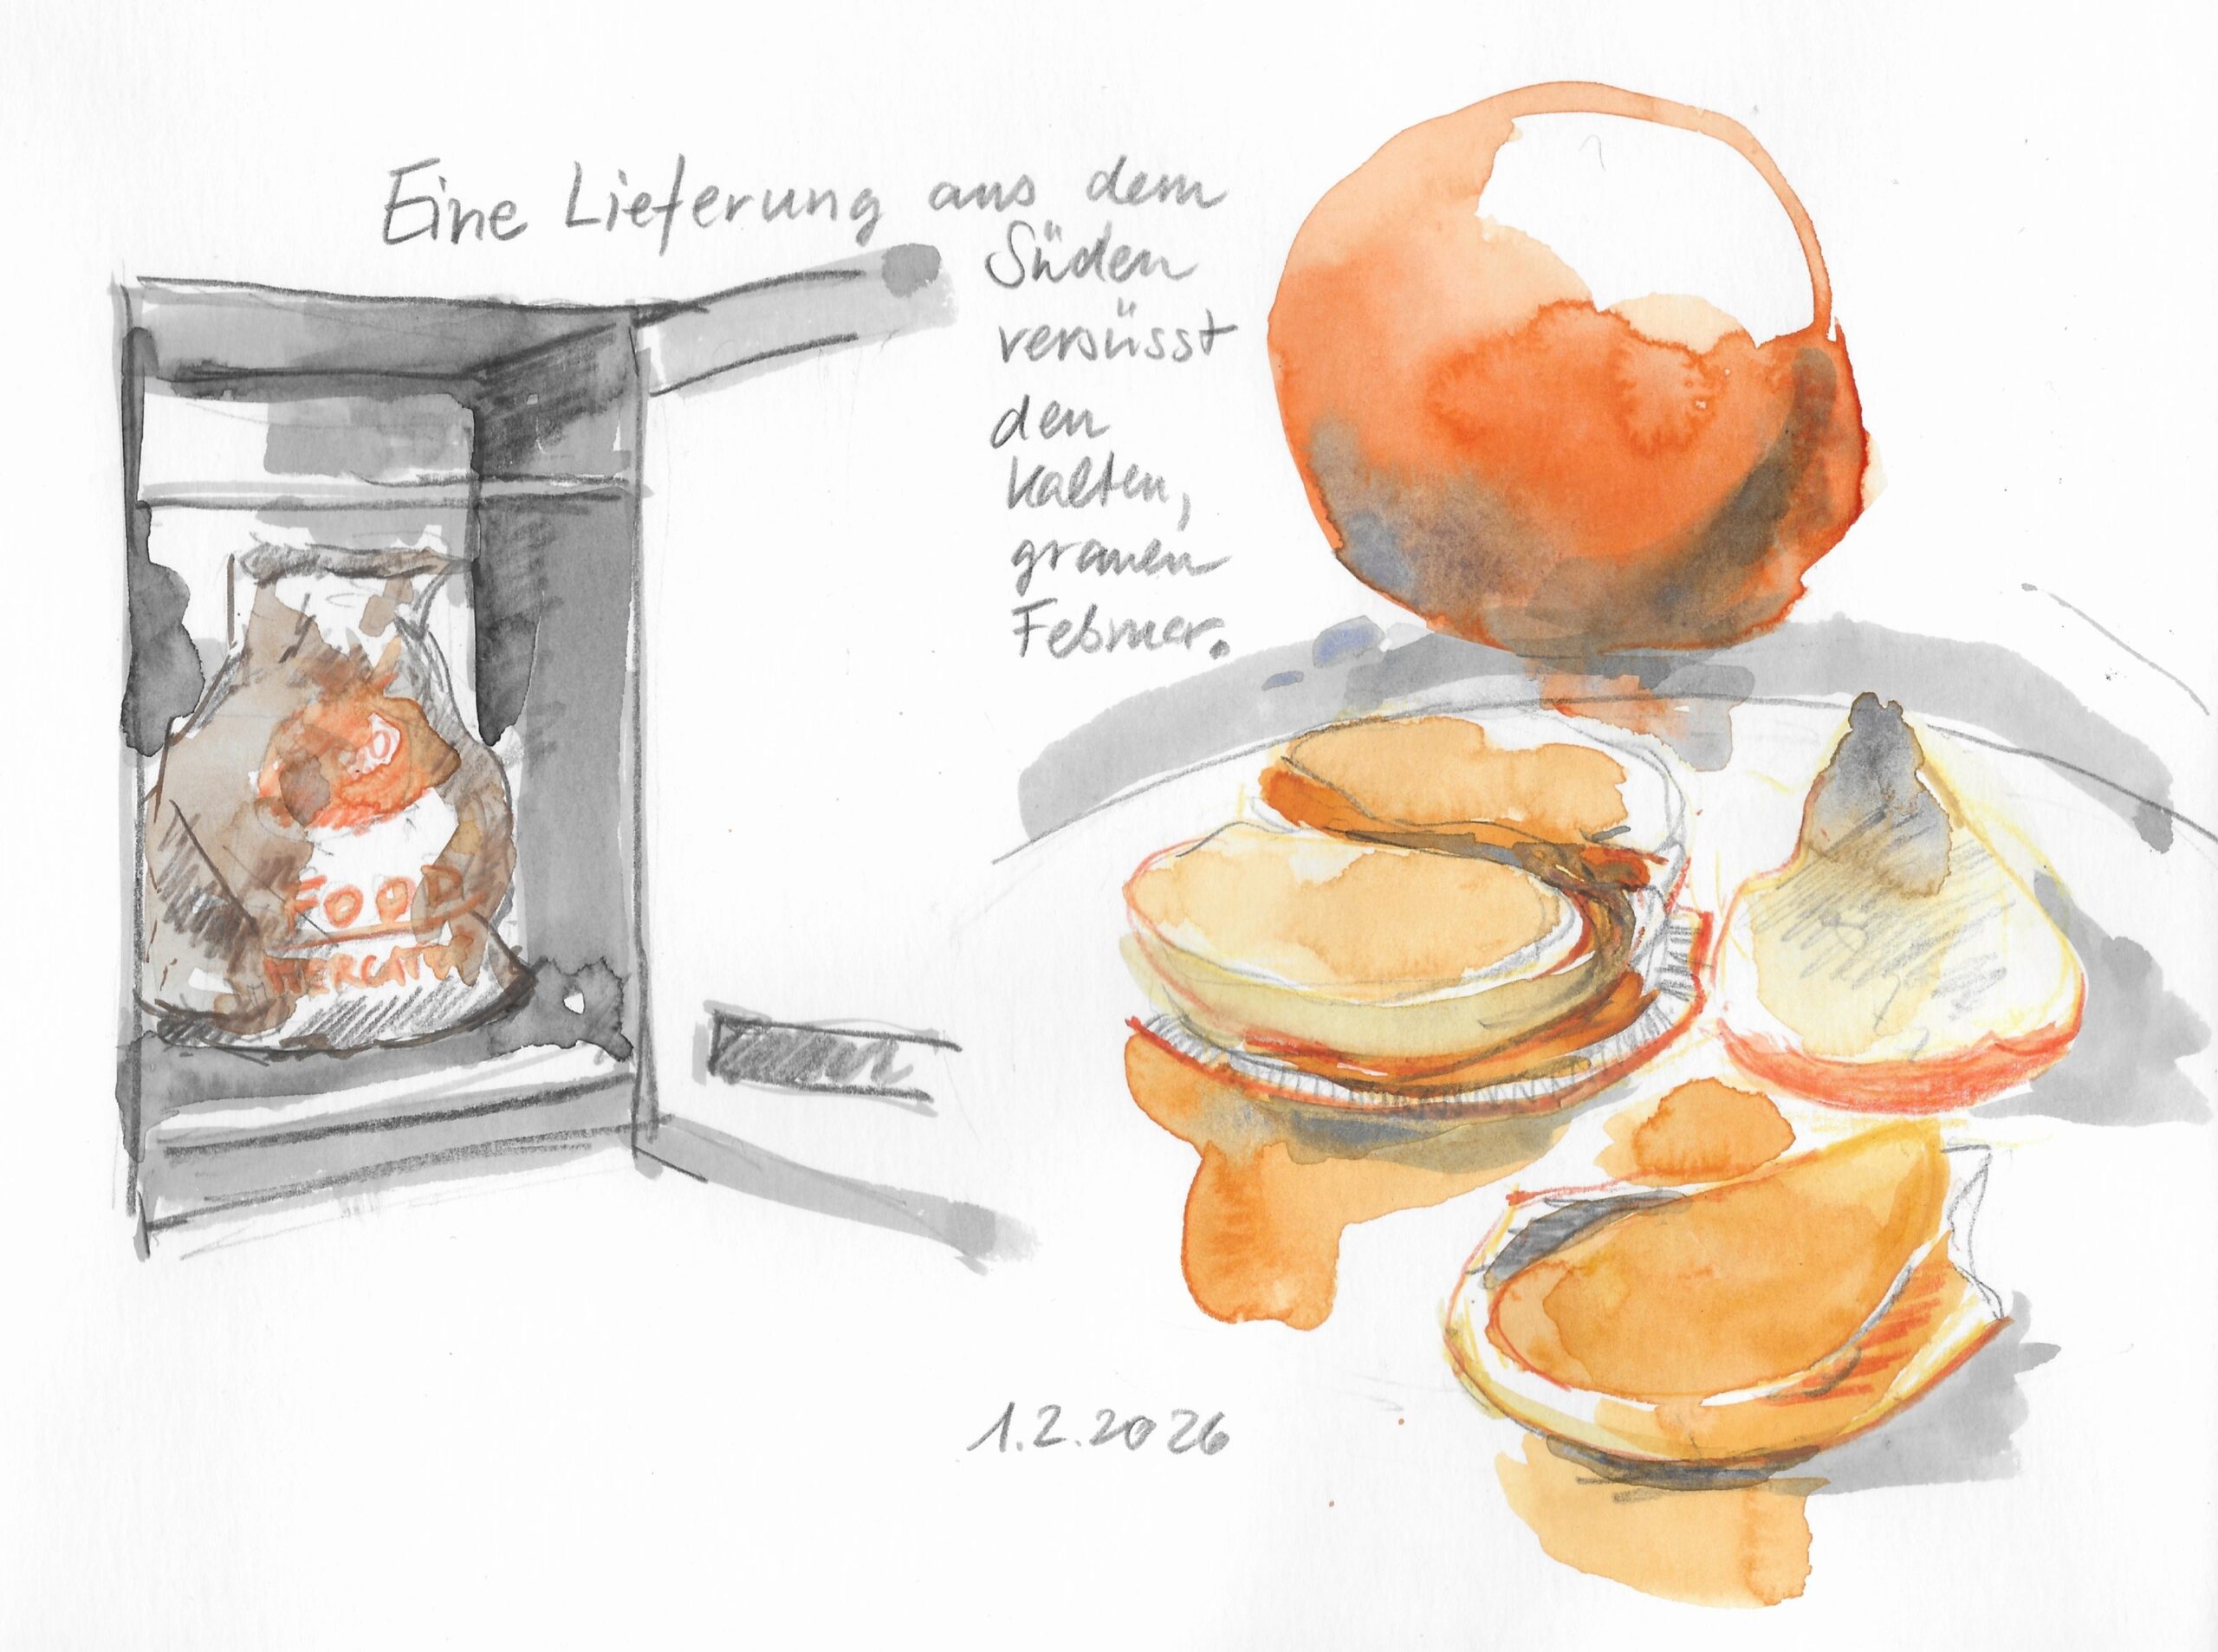 Eine Lieferung aus dem
Süden
versüsst
den
kalten,
grauen
Februar.
FOOD
MERCATO
1.2.2026